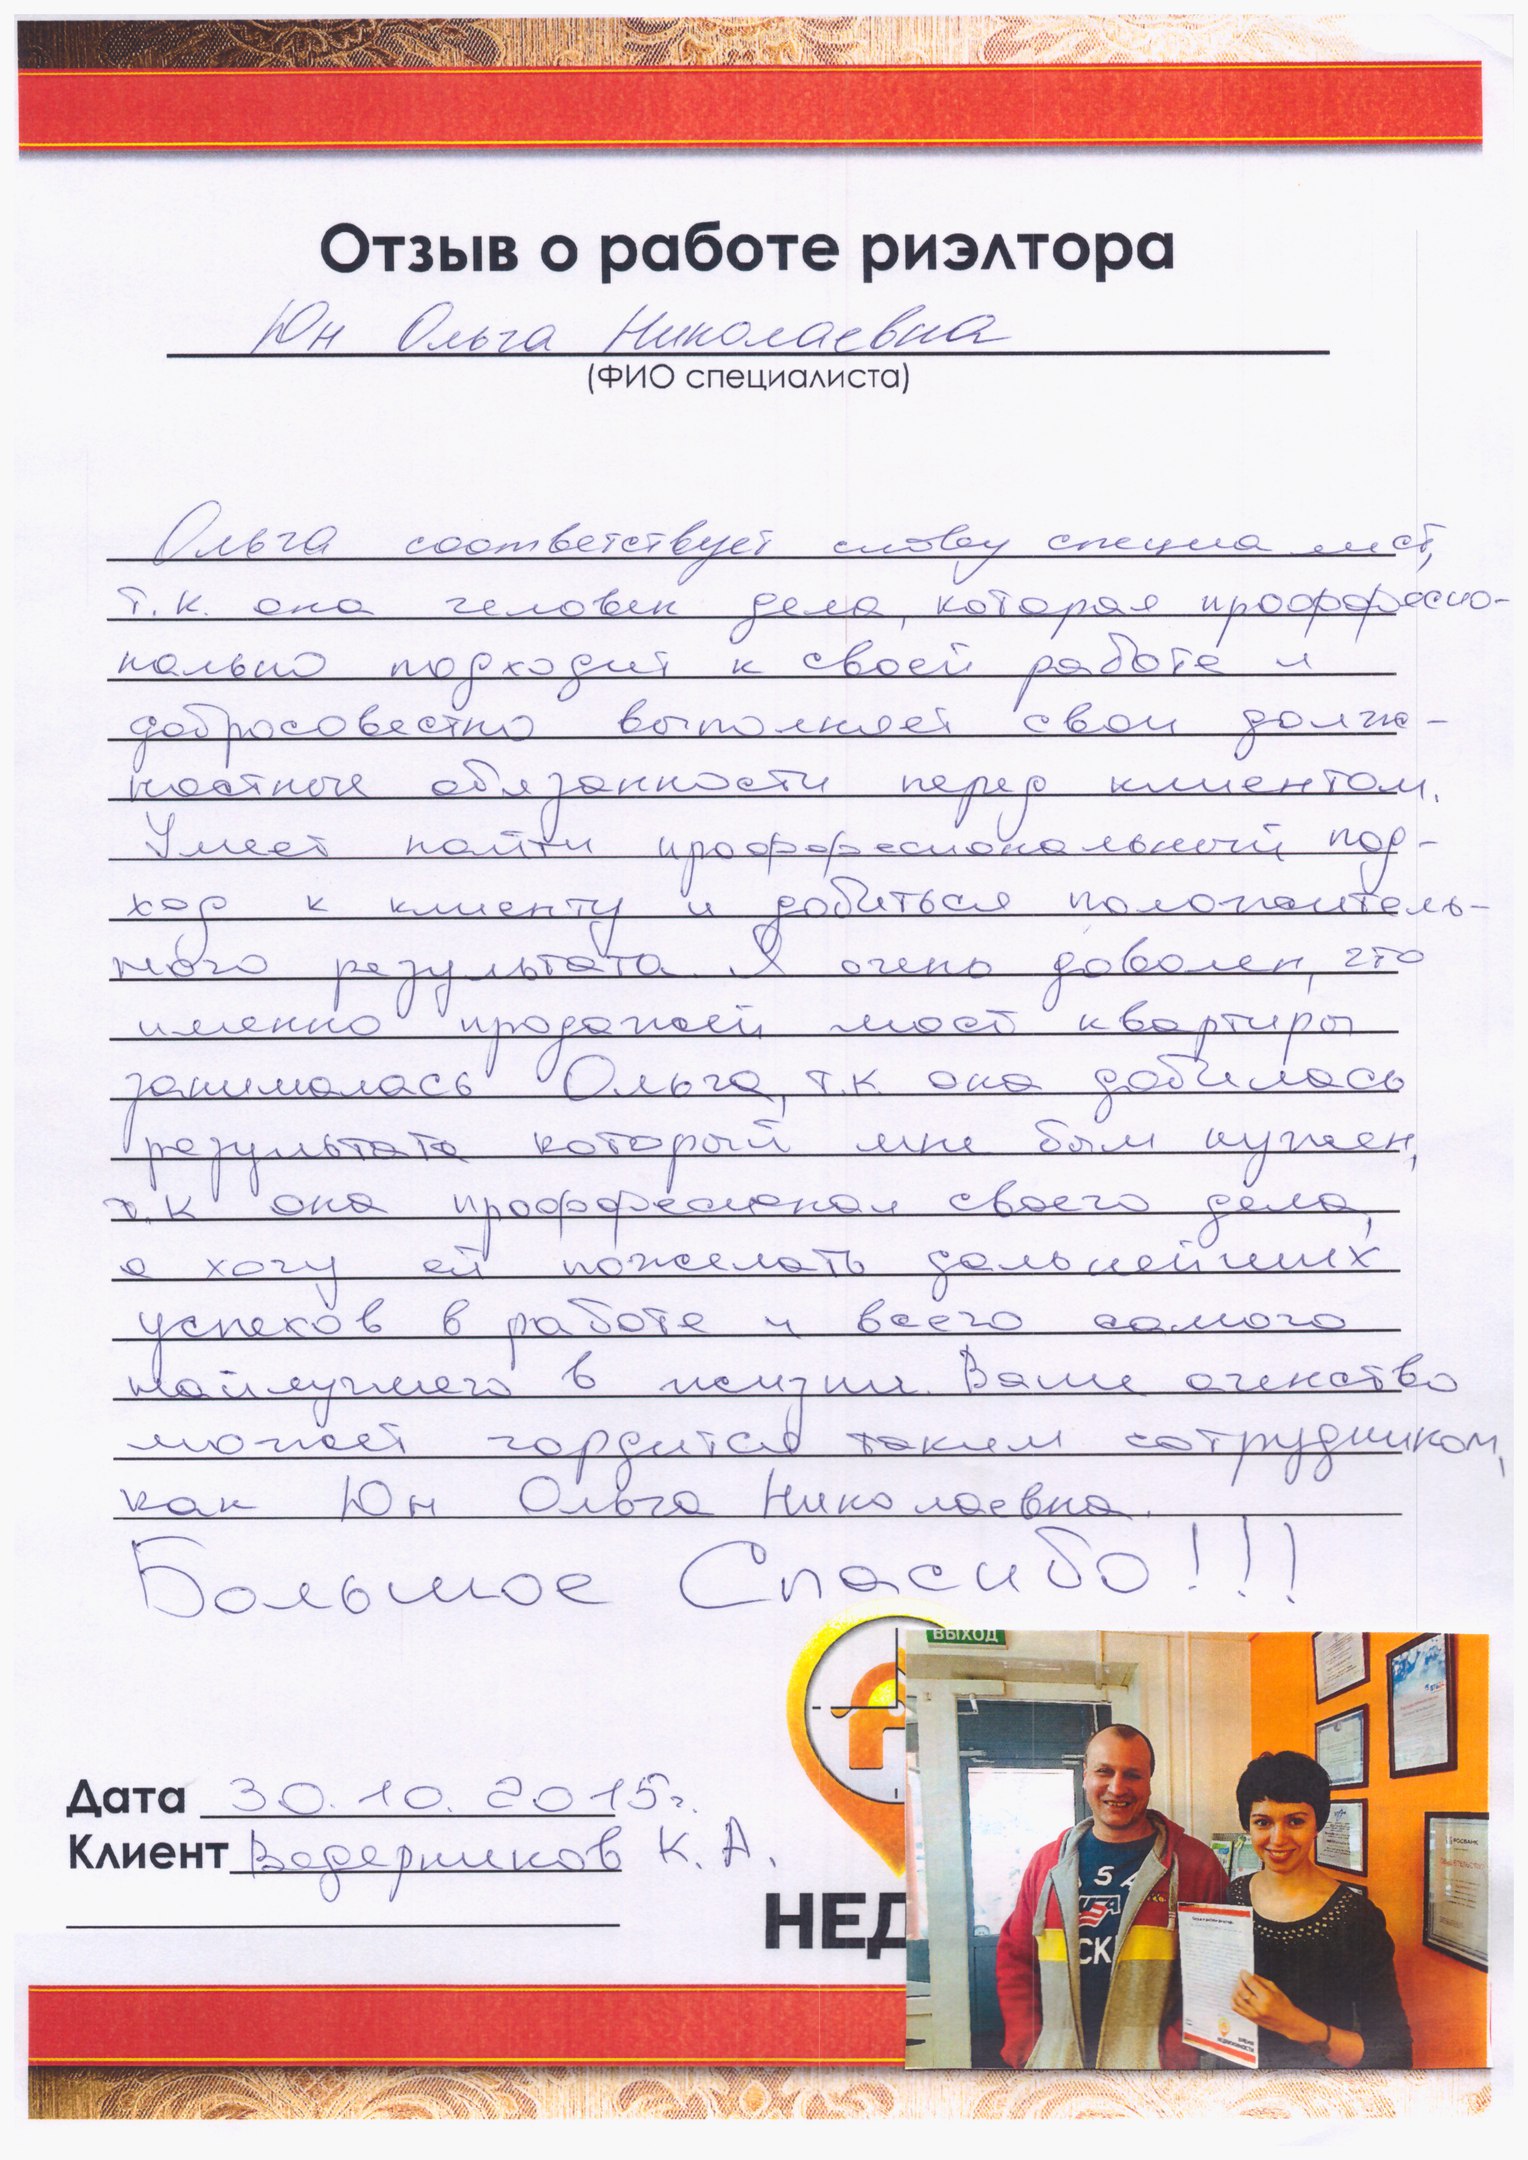 Отзыв о работе риэлтора
Юн Ольга Николаевна
(ФИО специалиста)
Ольга соответствует слову специалист,
т.к. она человек дела, которая проффесио-
нально подходит к своей работе и
добросовестно выполняет свои долж-
ностные обязанности перед клиентом.
Умеет найти проффесиональный под-
ход к клиенту и добиться положитель-
ного результата. Я очень доволен, что
именно продажей моей квартиры
занималась Ольга, т.к. она добилась
результата который мне был нужен,
т.к она проффесионал своего дела,
я хочу ей пожелать дальнейших
успехов в работе и всего самого
наилучшего в жизни. Ваше агенство
может гордится таким сотрудником,
как Юн Ольга Николаевна.
Большое Спасибо!!!
ВЫХОД
Дата 30.10.2015г.
Клиент Ведерников К.А.
НЕД
РОСБАНК